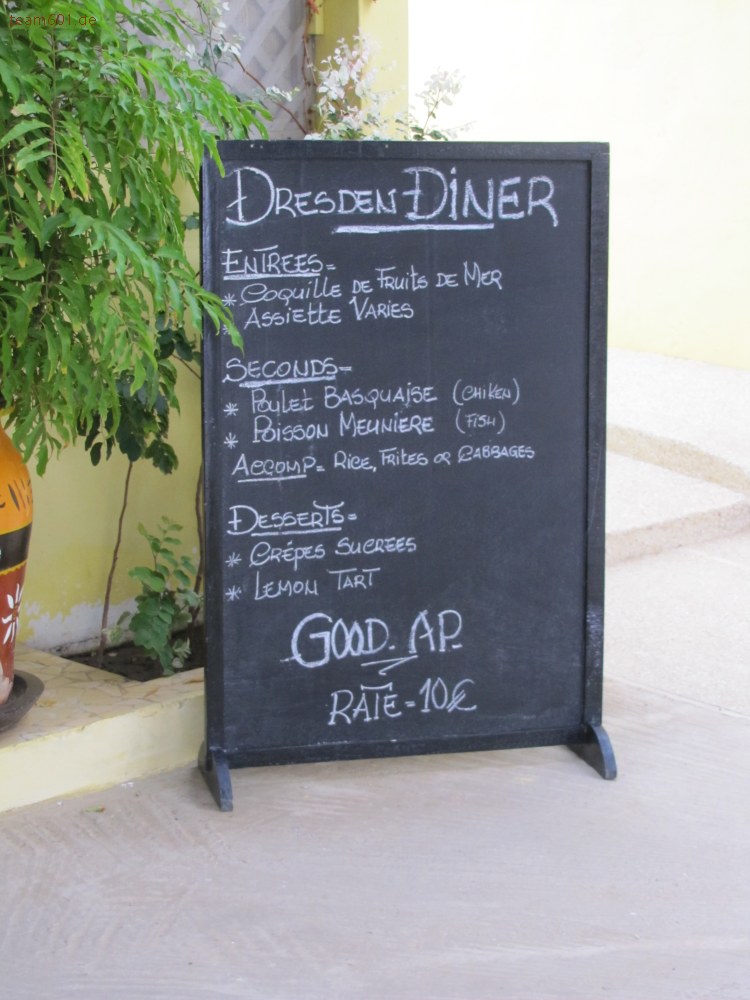 team601.de
DRESDEN DINER
ENTREES=
* COQUILLE DE FRUITS DE MER
* ASSIETTE VARIES
SECONDS=
* POULET BASQUAISE (CHIKEN)
* POISSON MEUNIERE (FISH)
ACCOMP= RICE, FRITES OR CABBAGES
DESSERTS=
* CRÉPES SUCREES
* LEMON TART
GOOD. AP.
RATE=10€